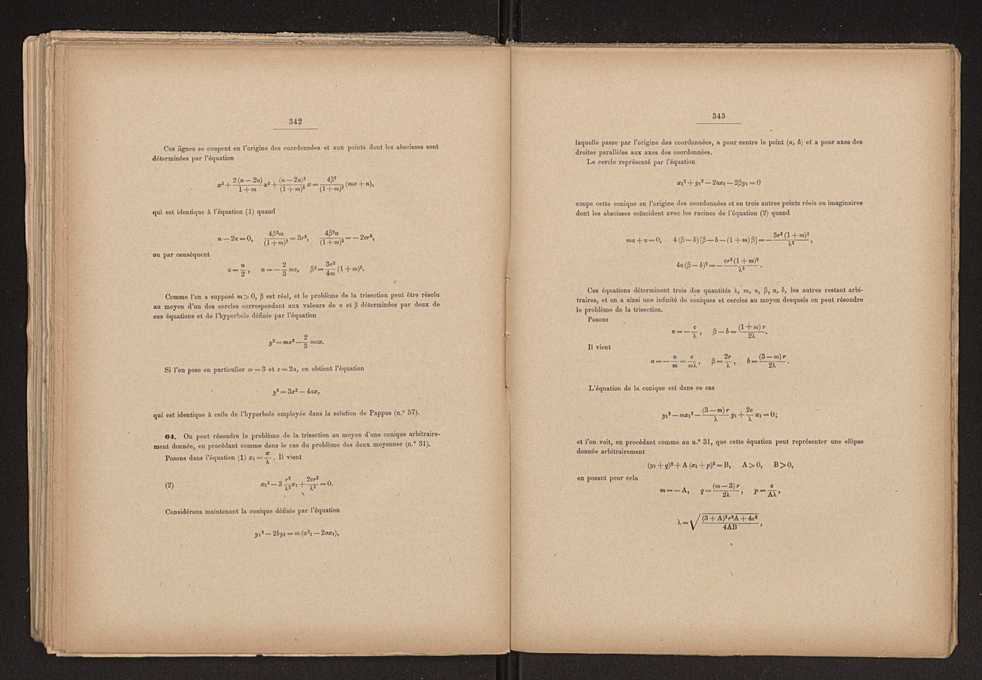 342
Ces lignes se coupent en l'origine des coordonnées et aux points dont les abscisses sont
déterminées par l'équation
x³ + 2(n − 2α)/(1+m) x² + (n − 2α)²/(1+m)² x = 4β²/(1+m)² (mx + n),
qui est identique à l'équation (1) quand
n − 2α = 0, 4β²n/(1+m)² = 3r², 4β²n/(1+m)² = −2cr²,
ou par conséquent
α = n/2, n = −2/3 mc, β² = 3r²/4m (1+m)².
Comme l'on a supposé m > 0, β est réel, et le problème de la trisection peut être résolu
au moyen d'un des cercles correspondant aux valeurs de α et β déterminées par deux de
ces équations et de l'hyperbole définie par l'équation
y² = mx² − 2/3 mcx.
Si l'on pose en particulier m = 3 et c = 2a, on obtient l'équation
y² = 3x² − 4ax,
qui est identique à celle de l'hyperbole employée dans la solution de Pappus (n.º 57).
64. On peut résoudre le problème de la trisection au moyen d'une conique arbitraire-
ment donnée, en procédant comme dans le cas du problème des deux moyennes (n.º 31).
Posons dans l'équation (1) x₁ = x/λ. Il vient
(2) x₁³ − 3 r²/λ² x₁ + 2cr²/λ³ = 0.
Considérons maintenant la conique définie par l'équation
y₁² − 2by₁ = m(x²₁ − 2ax₁),
343
laquelle passe par l'origine des coordonnées, a pour centre le point (a, b) et a pour axes des
droites parallèles aux axes des coordonnées.
Le cercle représenté par l'équation
x₁² + y₁² − 2αx₁ − 2βy₁ = 0
coupe cette conique en l'origine des coordonnées et en trois autres points réels ou imaginaires
dont les abscisses coïncident avec les racines de l'équation (2) quand
ma + α = 0, 4(β − b)[β − b − (1+m)β] = −3r²(1+m)²/λ²,
4α(β − b)² = −cr²(1+m)²/λ³.
Ces équations déterminent trois des quantités λ, m, α, β, a, b, les autres restant arbi-
traires, et on a ainsi une infinité de coniques et cercles au moyen desquels on peut résoudre
le problème de la trisection.
Posons
α = −c/λ, β − b = (1+m)r/2λ.
Il vient
a = −α/m = c/mλ, β = 2r/λ, b = (3 − m)r/2λ.
L'équation de la conique est dans ce cas
y₁² − mx₁² − (3 − m)r/λ y₁ + 2c/λ x₁ = 0;
et l'on voit, en procédant comme au n.º 31, que cette équation peut représenter une ellipse
donnée arbitrairement
(y₁ + q)² + A(x₁ + p)² = B, A > 0, B > 0,
en posant pour cela
m = −A, q = (m − 3)r/2λ, p = c/Aλ,
λ = √((3 + A)²r²A + 4c²/4AB),